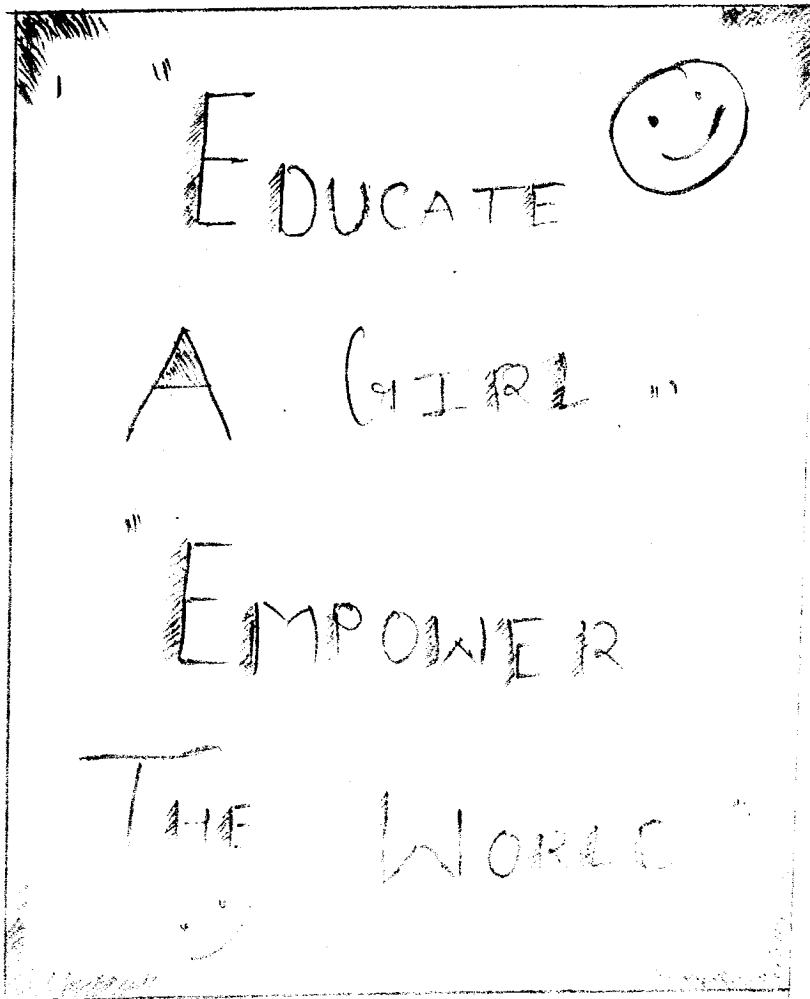 "EDUCATE
A GIRL"
"EMPOWER
THE WORLD"